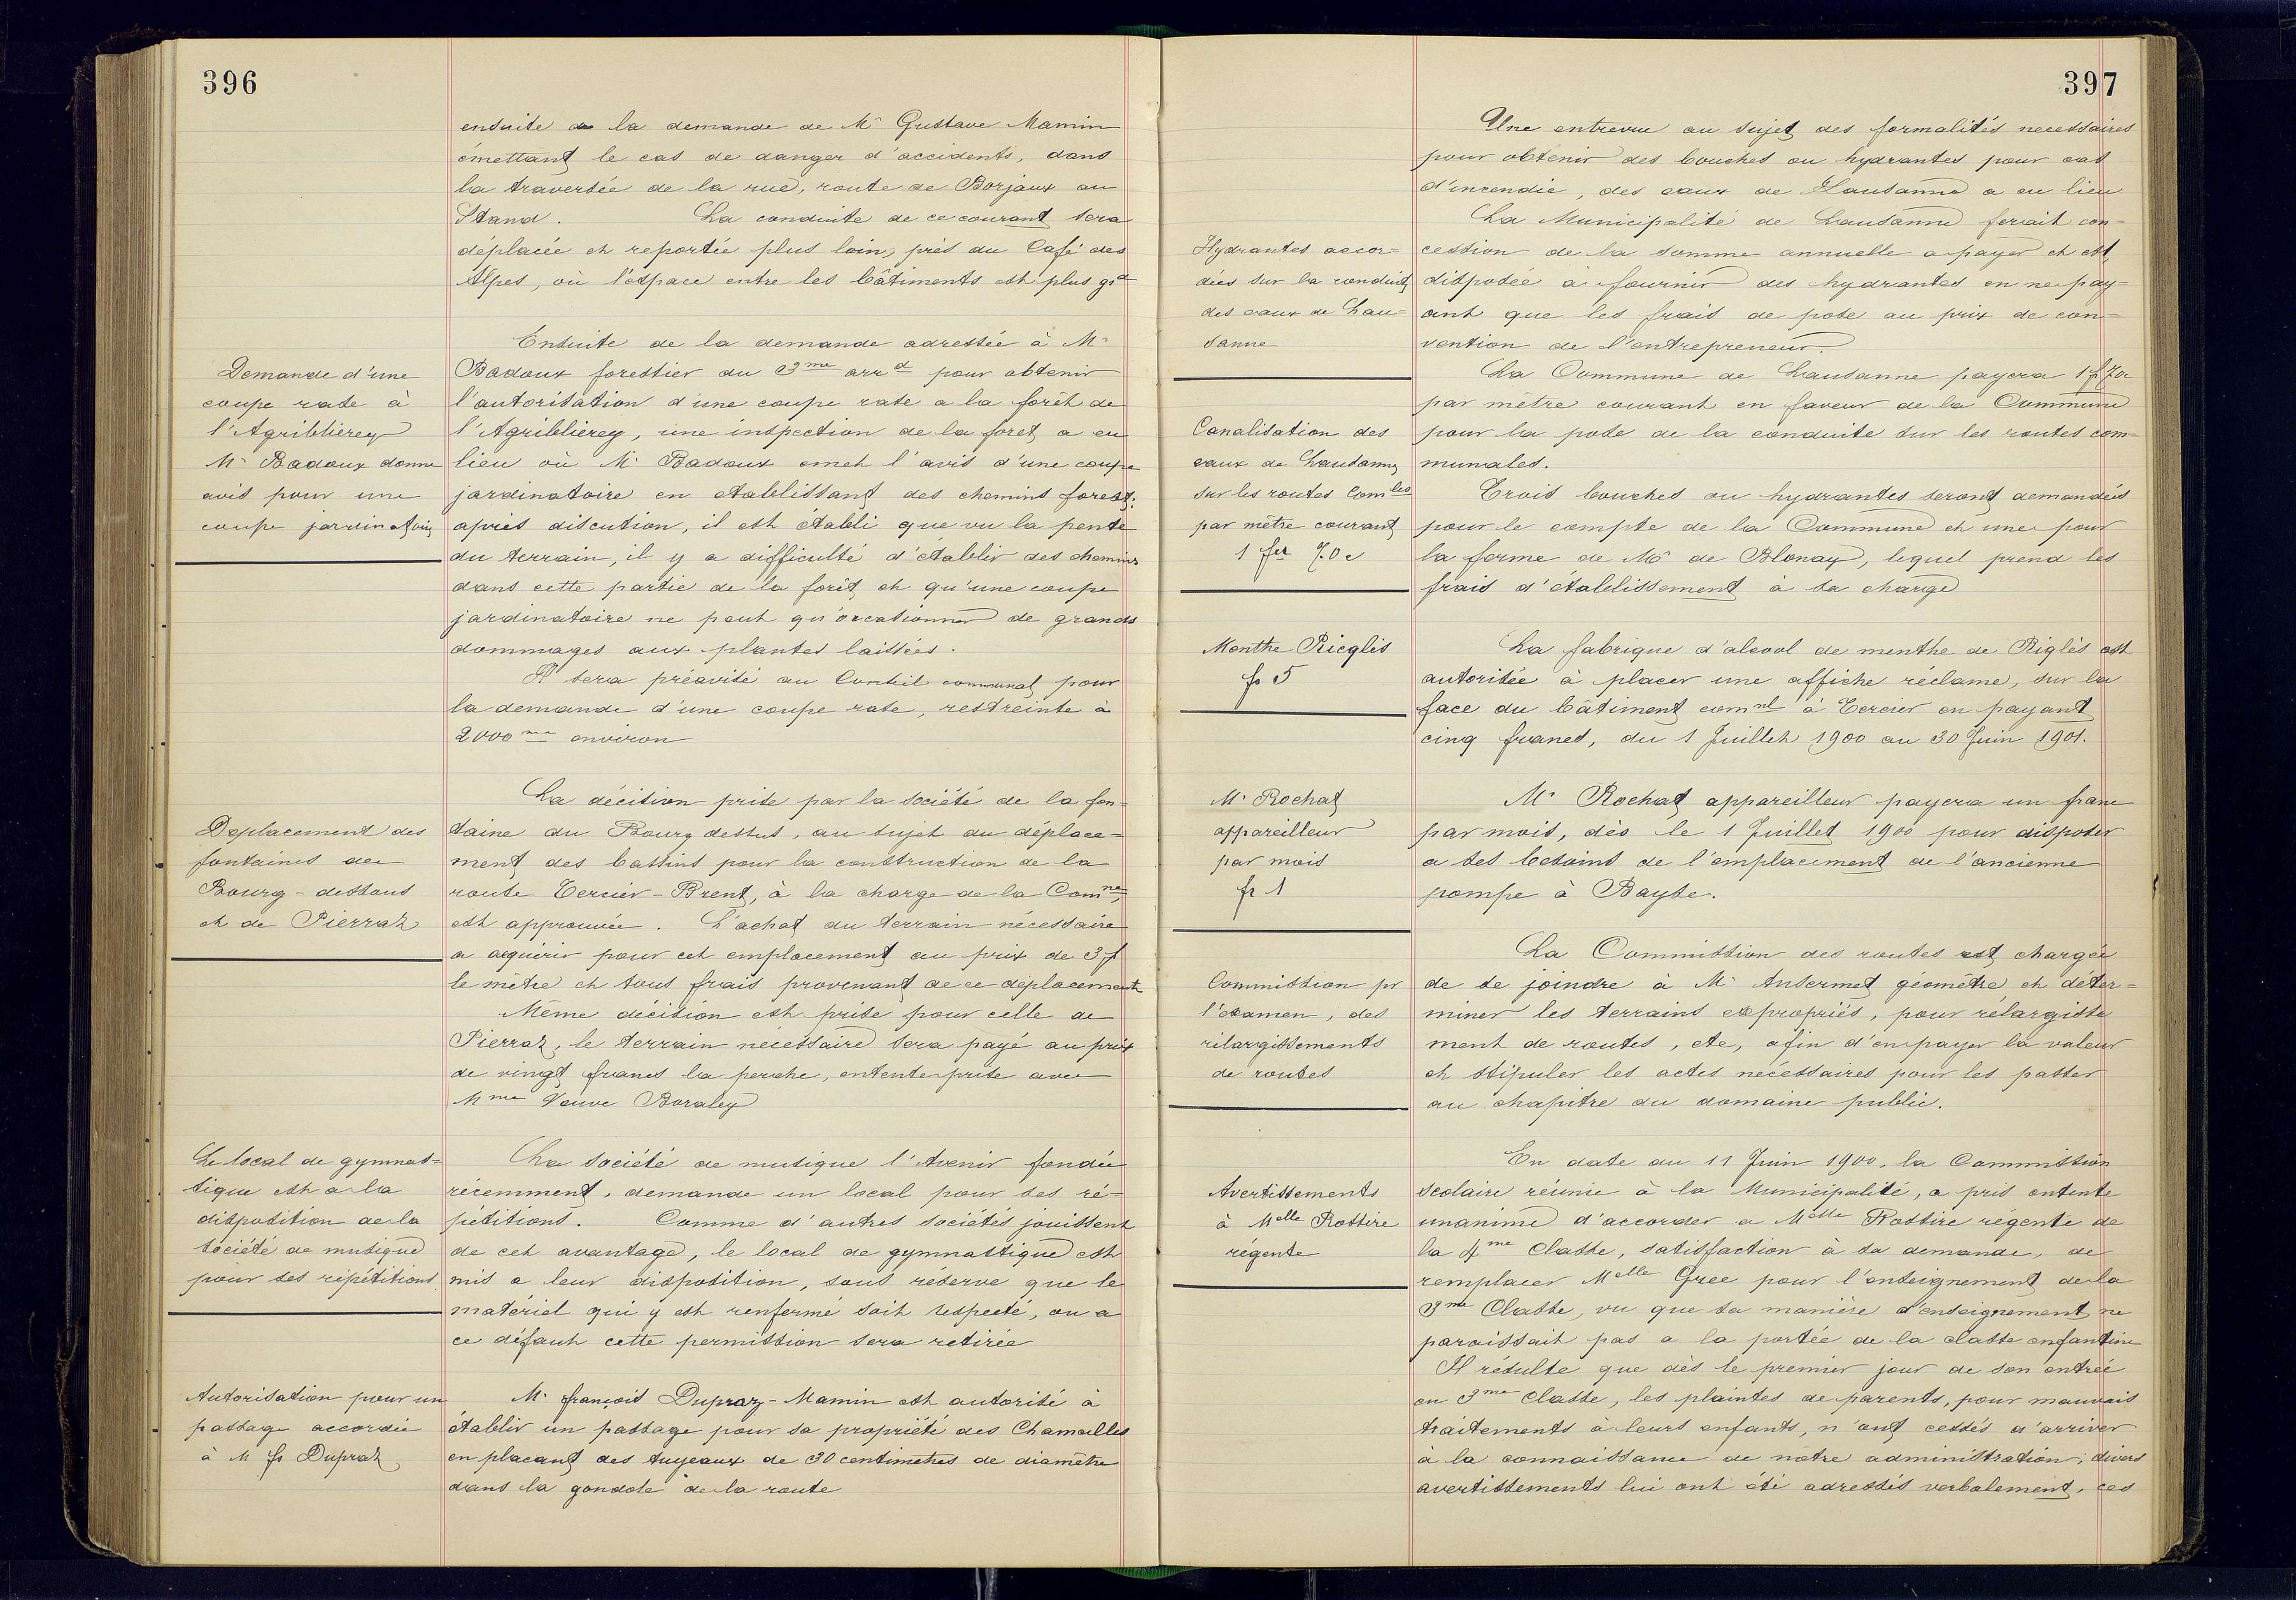 396
ensuite de la demande de Mr Gustave Mamin
émettant le cas de danger d'accidents, dans
la traversée de la rue, route de Borjaux au
Stand. La conduite de ce courant sera
déplacée et reportée plus loin, près du Café des
Alpes, où l'espace entre les bâtiments est plus grd
Demande d'une
coupe rase à
l'Agriblierey
Mr Badoux donne
avis pour une
coupe jardinatoire
Ensuite de la demande adressée à Mr
Badoux forestier du 3me arrd pour obtenir
l'autorisation d'une coupe rase a la forêt de
l'Agriblierey, une inspection de la foret a eu
lieu où Mr Badoux emet l'avis d'une coupe
jardinatoire en etablissant des chemins forest.
après discution, il est établi que vu la pente
du terrain, il y a difficulté d'établir des chemins
dans cette partie de la forêt et qu'une coupe
jardinatoire ne peut qu'occasionner de grands
dommages aux plantes laissées.
Il sera préavisé au Conseil communal pour
la demande d'une coupe rase, restreinte à
2000 me environ
Deplacement des
fontaines de
Bourg-dessous
et de Pierraz
La décision prise par la société de la fon=
taine du Bourg dessus, au sujet du déplace=
ment des bassins pour la construction de la
route Tercier-Brent, à la charge de la Comne,
est approuvée. L'achat du terrain nécessaire
a acquérir pour cet emplacement au prix de 3 f
le mètre et tous frais provenant de ce déplacement
Même décision est prise pour celle de
Pierraz, le terrain nécessaire sera payé au prix
de vingt francs la perche, entente prise avec
Mme Veuve Boraley
Le local de gymnas=
tique est a la
disposition de la
société de musique
pour ses répétitions
La société de musique l'Avenir fondée
récemment, demande un local pour ses ré=
pétitions. Comme d'autres sociétés jouissent
de cet avantage, le local de gymnastique est
mis a leur disposition, sous réserve que le
matériel qui y est renfermé soit respecté, ou a
ce défaut cette permission sera retirée
Autorisation pour un
passage accordée
à M fs Dupraz
Mr françois Dupraz-Mamin est autorisé à
établir un passage pour sa propriété des Chamailles
en placant des tuyeaux de 30 centimetres de diamètre
dans la gondole de la route
397
Une entrevue au sujet des formalités necessaires
pour obtenir des bouches ou hydrantes pour cas
d'incendie, des eaux de Lausanne a eu lieu
Hydrantes accor=
dées sur la conduite
des eaux de Lau=
sanne
La Municipalité de Lausanne ferait con=
cession de la somme annuelle a payer et est
disposée à fournir des hydrantes en ne pay=
ant que les frais de pose au prix de con=
vention de l'entrepreneur.
Canalisation des
eaux de Lausanne
sur les routes Comles
par mètre courant
1 fr 70 c
La Commune de Lausanne payera 1 f 70c
par mètre courant en faveur de la Commune
pour la pose de la conduite sur les routes com=
munales.
Trois bouches ou hydrantes seront demandées
pour le compte de la Commune et une pour
la ferme de Mr de Blonay, lequel prend les
frais d'établissement à sa charge
Menthe Ricglès
fr 5
La fabrique d'alcool de menthe de Riglès est
autorisée à placer une affiche réclame, sur la
face du bâtiment comnl à Tercier en payant
cinq francs, du 1 Juillet 1900 au 30 Juin 1901.
Mr Rochat
appareilleur
par mois
fr 1
Mr Rochat appareilleur payera un franc
par mois, dès le 1 Juillet 1900 pour disposer
a ses besoins de l'emplacement de l'ancienne
pompe à Bayse.
Commission pr
l'examen, des
rélargissements
de routes
La Commission des routes est chargée
de se joindre à Mr Ansermet géomètre et déter=
miner les terrains expropriés, pour rélargisse
ment de routes, etc, afin d'en payer la valeur
et stipuler les actes nécessaires pour les passer
au chapitre du domaine public.
Avertissements
à Melle Rossire
régente
En date du 11 Juin 1900, la Commission
scolaire réunie à la Municipalité, a pris entente
unanime d'accorder a Melle Rossire régente de
la 4me Classe, satisfaction à sa demande, de
remplacer Melle Gree pour l'enseignement de la
3me Classe, vu que sa manière d'enseignement ne
paraissait pas a la portée de la classe enfantine
Il résulte que dès le premier jour de son entrée
en 3me classe, les plaintes de parents, pour mauvais
traitements à leurs enfants, n'ont cessés d'arriver
à la connaissance de notre administration; divers
avertissements lui ont été adressés verbalement, ces